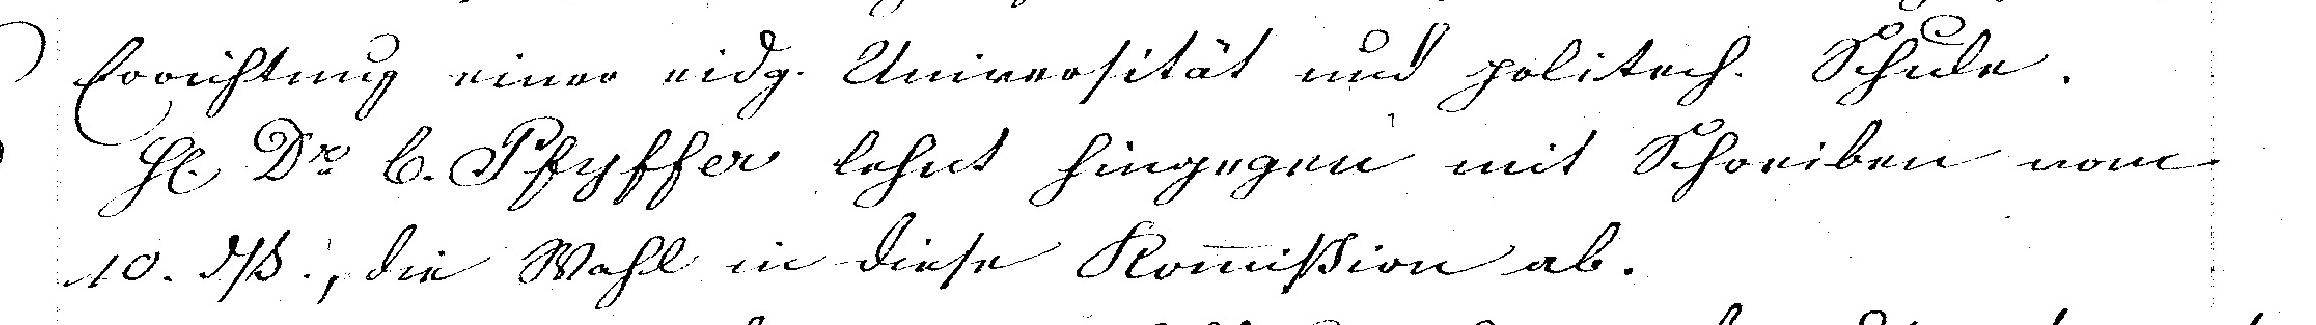 Errichtung einer eidg. Universität und politech. Schule.
Hl. Dr. C. Pfyffer lehnt hingegen mit Schreiben vom
10. dß., die Wahl in diese Kom̅ißion ab.